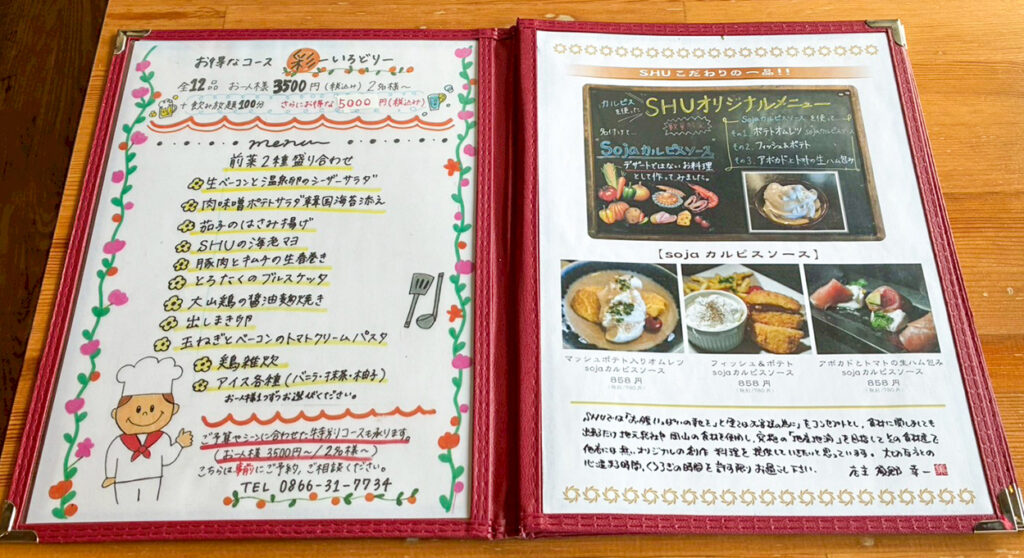 お得なコース 彩 ーいろどりー
全12品 お一人様 3500円(税込み) 2名様〜
+飲み放題100分 さらにお得な 5000円(税込み)
menu
前菜2種盛り合わせ
生ベーコンと温泉卵のシーザーサラダ
肉味噌ポテトサラダ韓国海苔添え
茄子のはさみ揚げ
SHUの海老マヨ
豚肉とキムチの生春巻き
とろたくのブルスケッタ
大山鶏の醤油麹焼き
出しまき卵
玉ねぎとベーコンのトマトクリームパスタ
鶏雑炊
アイス各種(バニラ・抹茶・柚子)
お一人様1つずつお選びください。
ご予算やシーンに合わせた特別コースも承ります。
(お一人様 3500円〜/2名様〜)
こちらは事前にご予約、ご相談ください。
TEL 0866-31-7734
SHUこだわりの一品!!
カルピスを使った SHUオリジナルメニュー
名付けて…
Sojaカルピスソース
デザートではないお料理
として作ってみました。
Sojaカルピスソースを使って
その1. ポテトオムレツ sojaカルピスソース
その2. フィッシュ&ポテト
その3. アボカドとトマトの生ハム包み
【sojaカルピスソース】
マッシュポテト入りオムレツ
sojaカルピスソース
858円
(税抜/780円)
フィッシュ&ポテト
sojaカルピスソース
858円
(税抜/780円)
アボカドとトマトの生ハム包み
sojaカルピスソース
858円
(税抜/780円)
SHUでは「お腹いっぱいの幸せをと全てはお客様の為に」をコンセプトとし、食材に関しましても
出来るだけ地元総社や岡山の食材を使用し、究極の「地産地消」を目指してどの食材屋
他店には無いオリジナルの創作料理を提供していきたいと思っています。大切な方との
心温まる時間、くつろぎの時間を許す限りお過し下さい。
店主 幸一